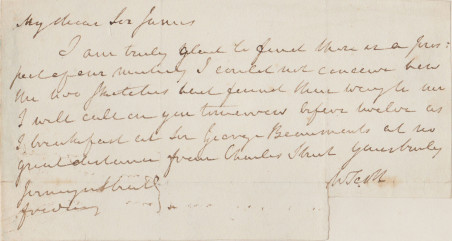 My dear Sir James
I am truly glad to find there is a pros=
pect of our meeting I could not conceive how
the two sketches but found them
I will call on you tomorrow before twelve as
I breakfast at Sir George Beaumonts at no
great distance from Charles Street yours truly
W Scott
Jermyn Street